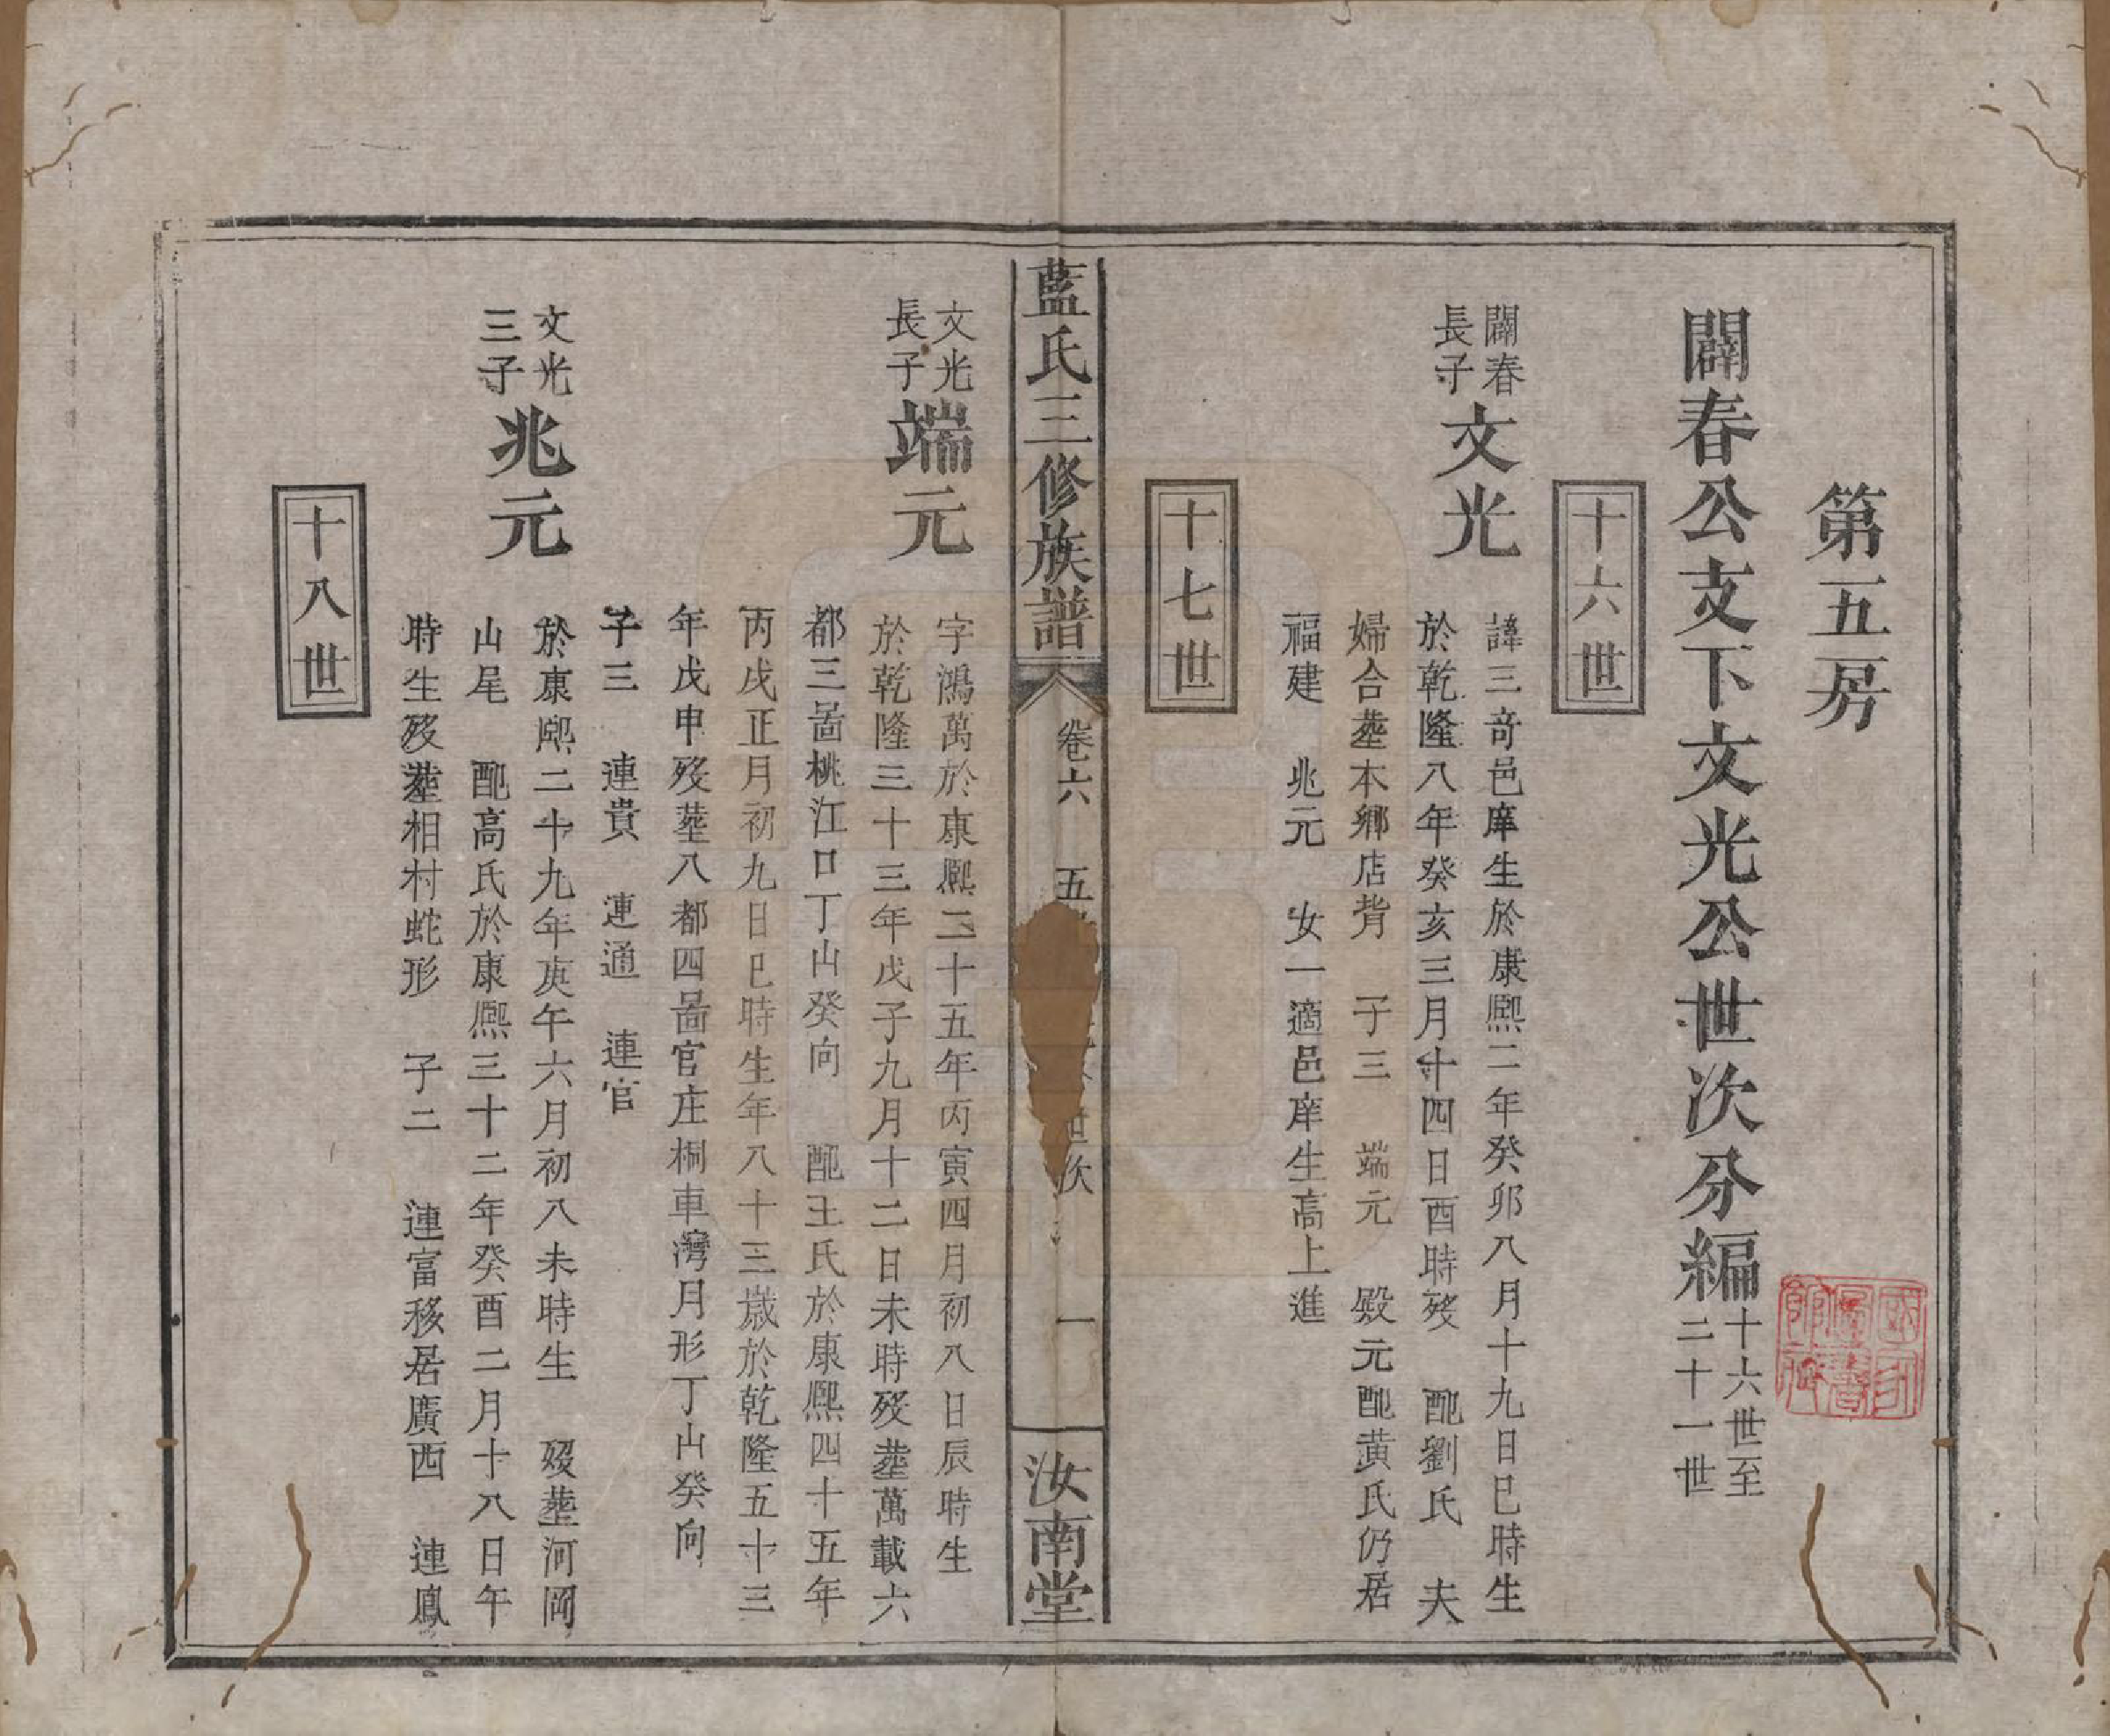 第五房
闢春公支下文光公世次分編
十六世至
二十一世
十六世
闢春
長子
文光
諱三奇邑庠生於康熙二年癸卯八月十九日巳時生
於乾隆八年癸亥三月十四日酉時歿 配劉氏 夫
婦合塟本鄉店背 子三 端元 殿元配黃氏仍居
福建 兆元 女一適邑庠生高上進
十七世
藍氏三修族譜
卷六 五
世次
一
汝南堂
文光
長子
端元
字鴻萬於康熙二十五年丙寅四月初八日辰時生
於乾隆三十三年戊子九月十二日未時歿塟萬載六
都三啚桃江口丁山癸向 配王氏於康熙四十五年
丙戌正月初九日巳時生年八十三歲於乾隆五十三
年戊申歿塟八都四啚官庄桐車灣月形丁山癸向
子三 連貴 連通 連官
文光
三子
兆元
於康熙二十九年庚午六月初八未時生 歿塟河岡
山尾 配高氏於康熙三十二年癸酉二月十八日午
時生歿塟相村蛇形 子二 連富移居廣西 連鳳
十八世